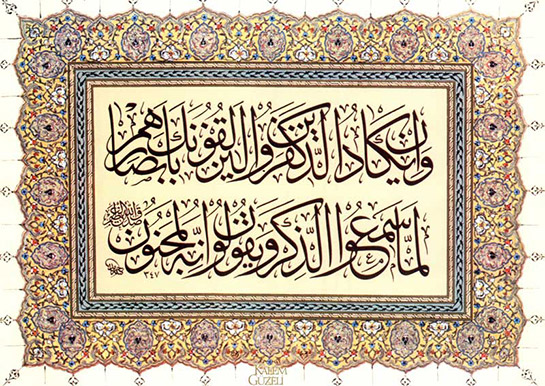 وَإِن يَكَادُ الَّذِينَ كَفَرُوا لَيُزْلِقُونَكَ بِأَبْصَارِهِمْ
لَمَّا سَمِعُوا الذِّكْرَ وَيَقُولُونَ إِنَّهُ لَمَجْنُونٌ
٣٤٧
KALEM
GÜZELİ